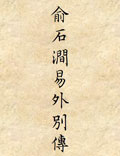 俞石澗易外別傳